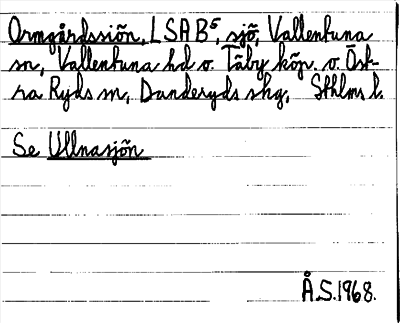 Ormgårdssjön, LSAB⁵, sjö, Vallentuna
sn, Vallentuna hd o. Täby köp. o. Öst-
ra Ryds sn, Danderyds shg, Sthlms l.
Se Ullnasjön
Å.S. 1968.